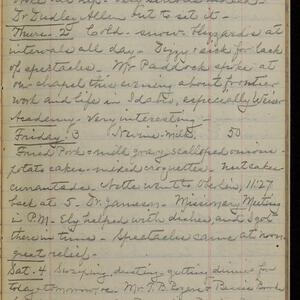 Dr. Dudley Allen out to set it -
Thurs. 2 Cold - snow flizzards at
intervals all day - Dizzy & sick for lack
of spectacles - Mr Paddock spoke at
on-chapel this evening about frontier
work and life in Idaho, especially Weiser
Academy. Very interesting -
Friday 3 milk, 50
Fried Pork - milk gravy scalloped onions
potato cakes - mixed croquettes - nut cakes
currantade - Nettie went to Oberlin, 11:27
back at 5 - Dr. Jameson - Missionary Meeting
in P.M. - Ely helped with dishes and I got
there in time - Spectacles came at noon
great relief -
Sat. 4 Sweeping, dusting, getting dinner for
today & tomorrow. Mr. T. B.